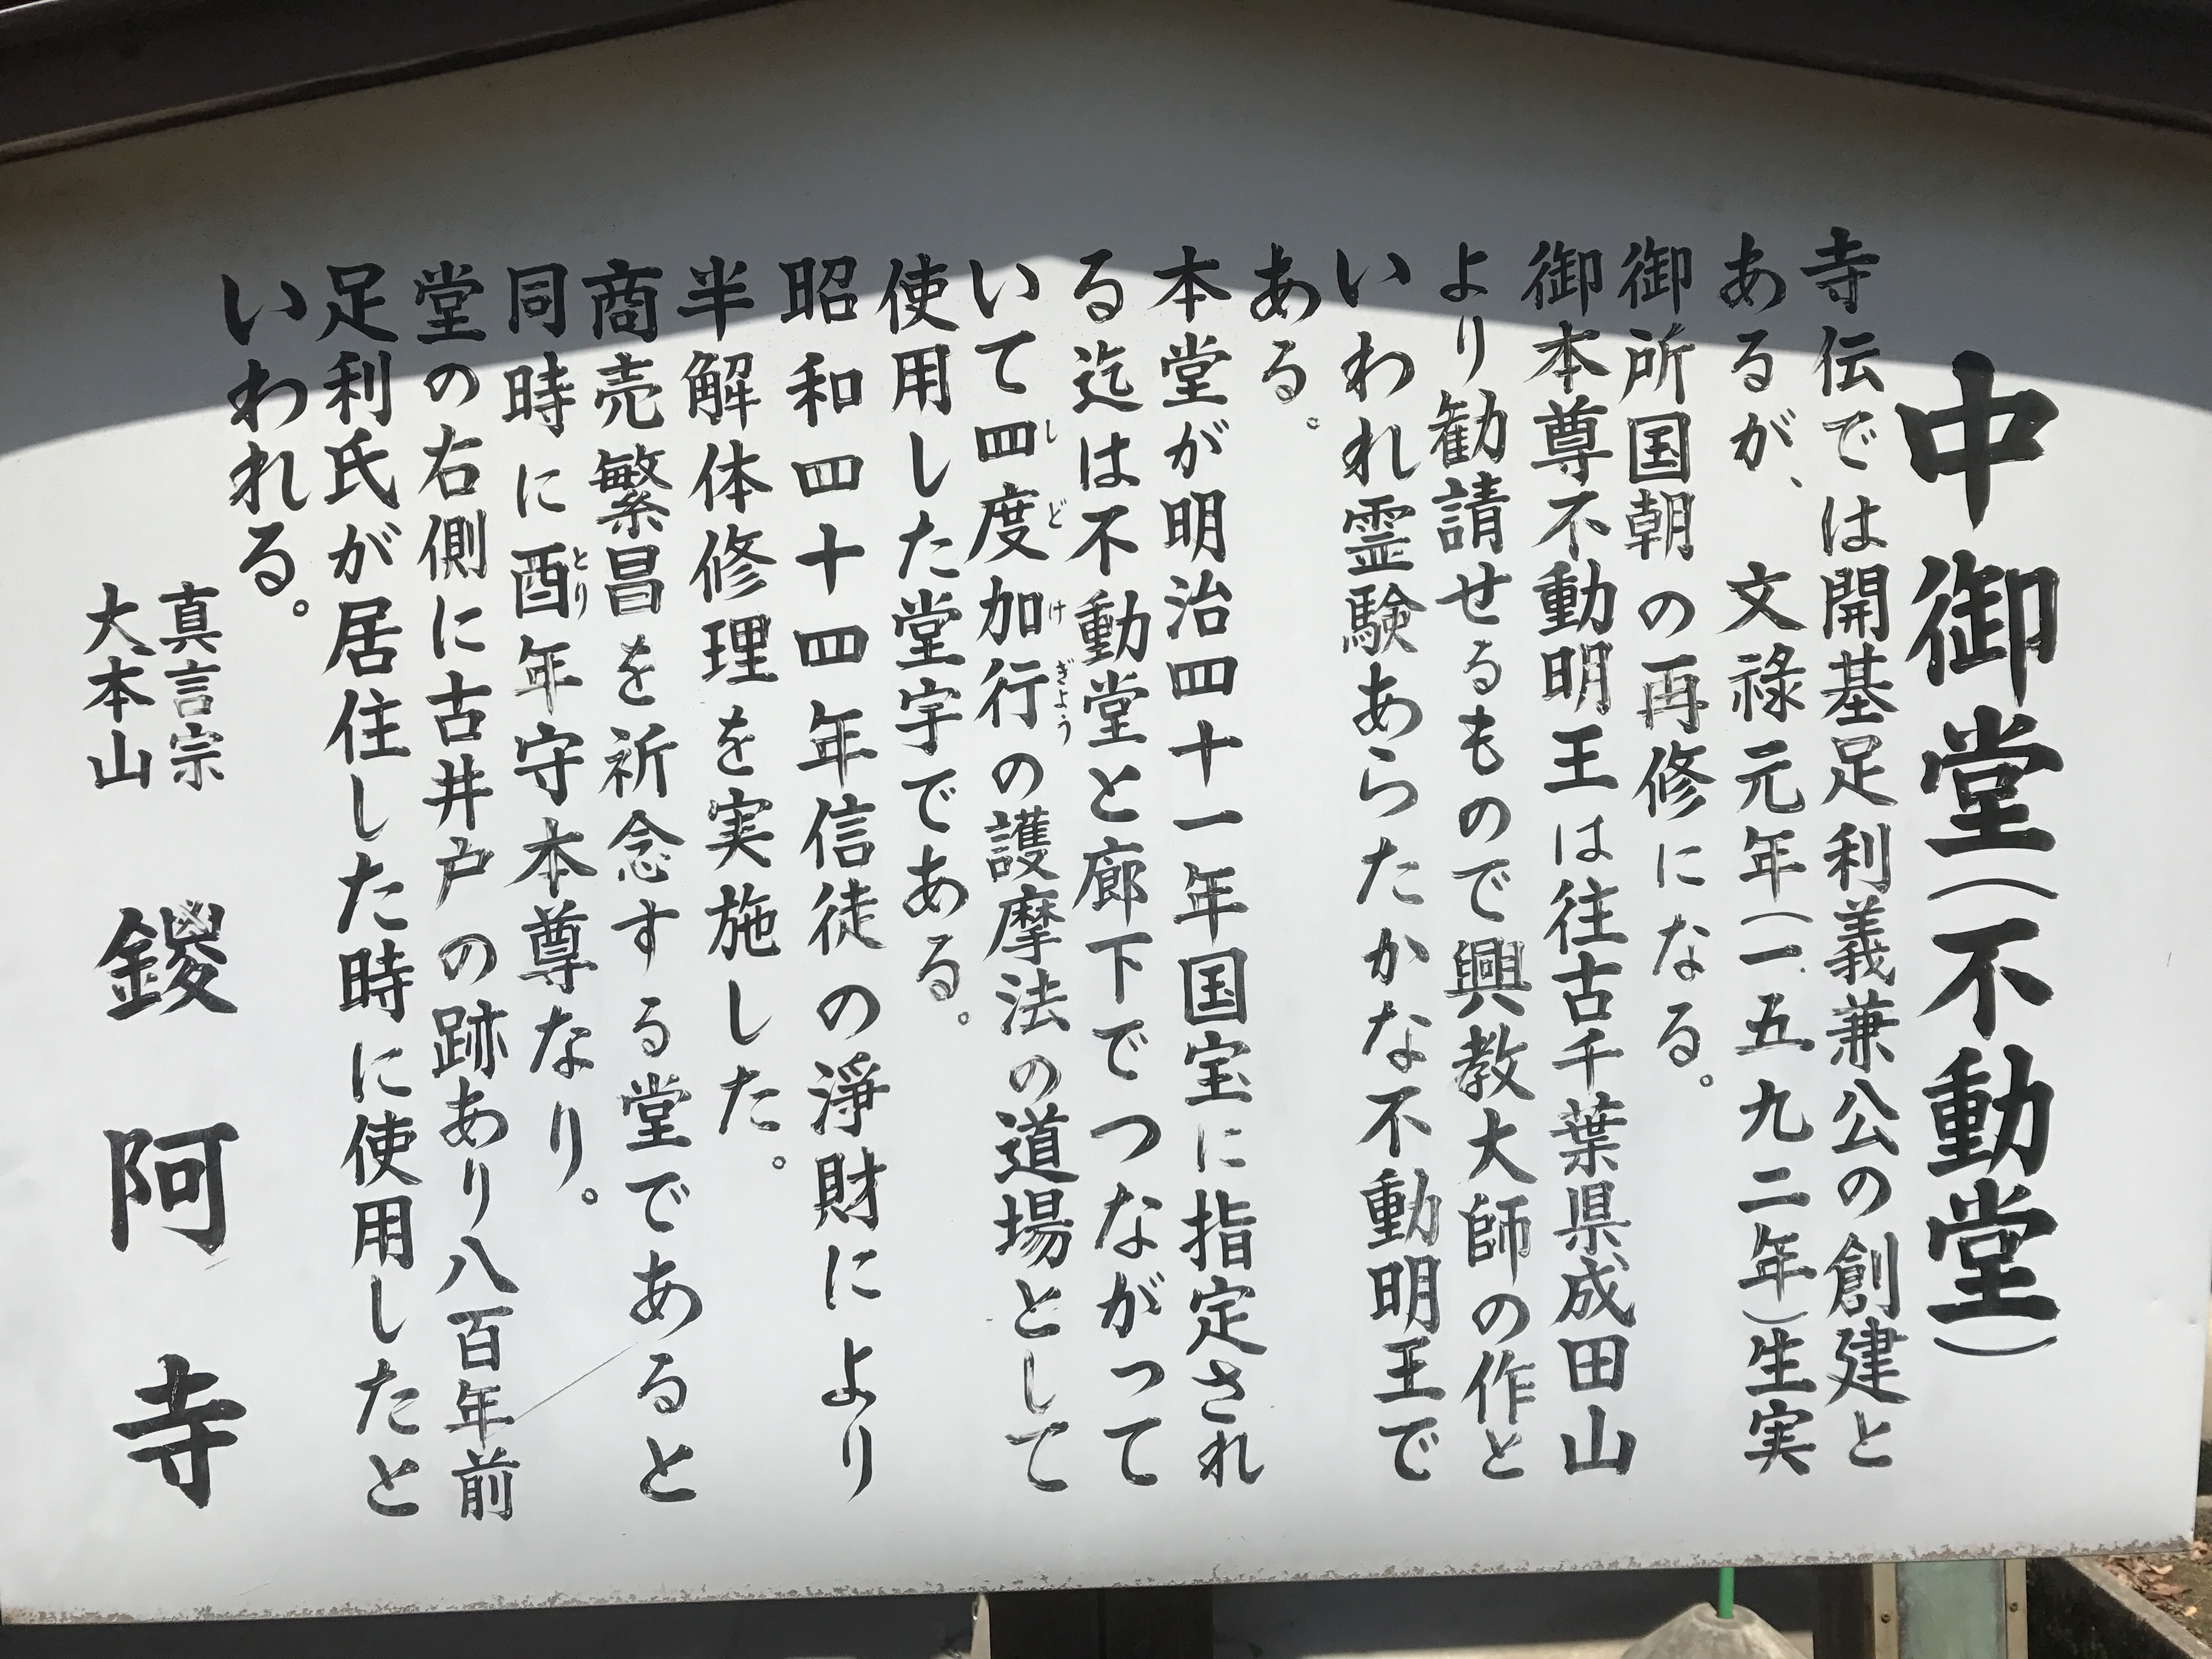 中御堂(不動堂)
寺伝では開基足利義兼公の創建と
あるが、文祿元年(一五九二年)生実
御所国朝の再修になる。
御本尊不動明王は往古千葉県成田山
より勧請せるもので興教大師の作と
いわれ霊験あらたかな不動明王で
ある。
本堂が明治四十一年国宝に指定され
る迄は不動堂と廊下でつながって
いて四度加行の護摩法の道場として
しどけぎょう
使用した堂宇である。
昭和四十四年信徒の淨財により
半解体修理を実施した。
商売繁昌を祈念する堂であると
同時に酉年守本尊なり。
とり
堂の右側に古井戸の跡あり八百年前
足利氏が居住した時に使用したと
いわれる。
真言宗
大本山
鑁阿寺